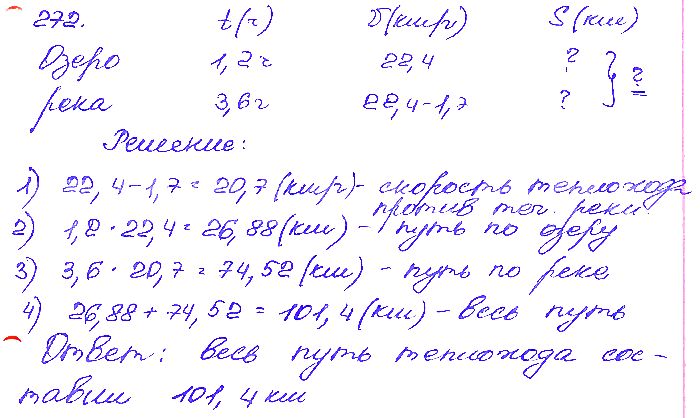 272. t(ч) v(км/ч) S(км)
Озеро 1,2ч 22,4 ?
река 3,6ч 22,4-1,7 ? } ?
Решение:
1) 22,4-1,7=20,7(км/ч)- скорость теплохода
против теч. реки
2) 1,2·22,4=26,88(км) - путь по озеру
3) 3,6·20,7=74,52(км) - путь по реке
4) 26,88+74,52=101,4(км)-весь путь
Ответ: весь путь теплохода сос-
тавил 101,4 км